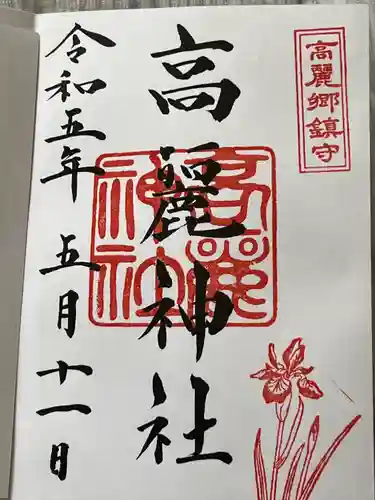 高麗郷鎮守
高麗神社
高麗神社
令和五年 五月十一日